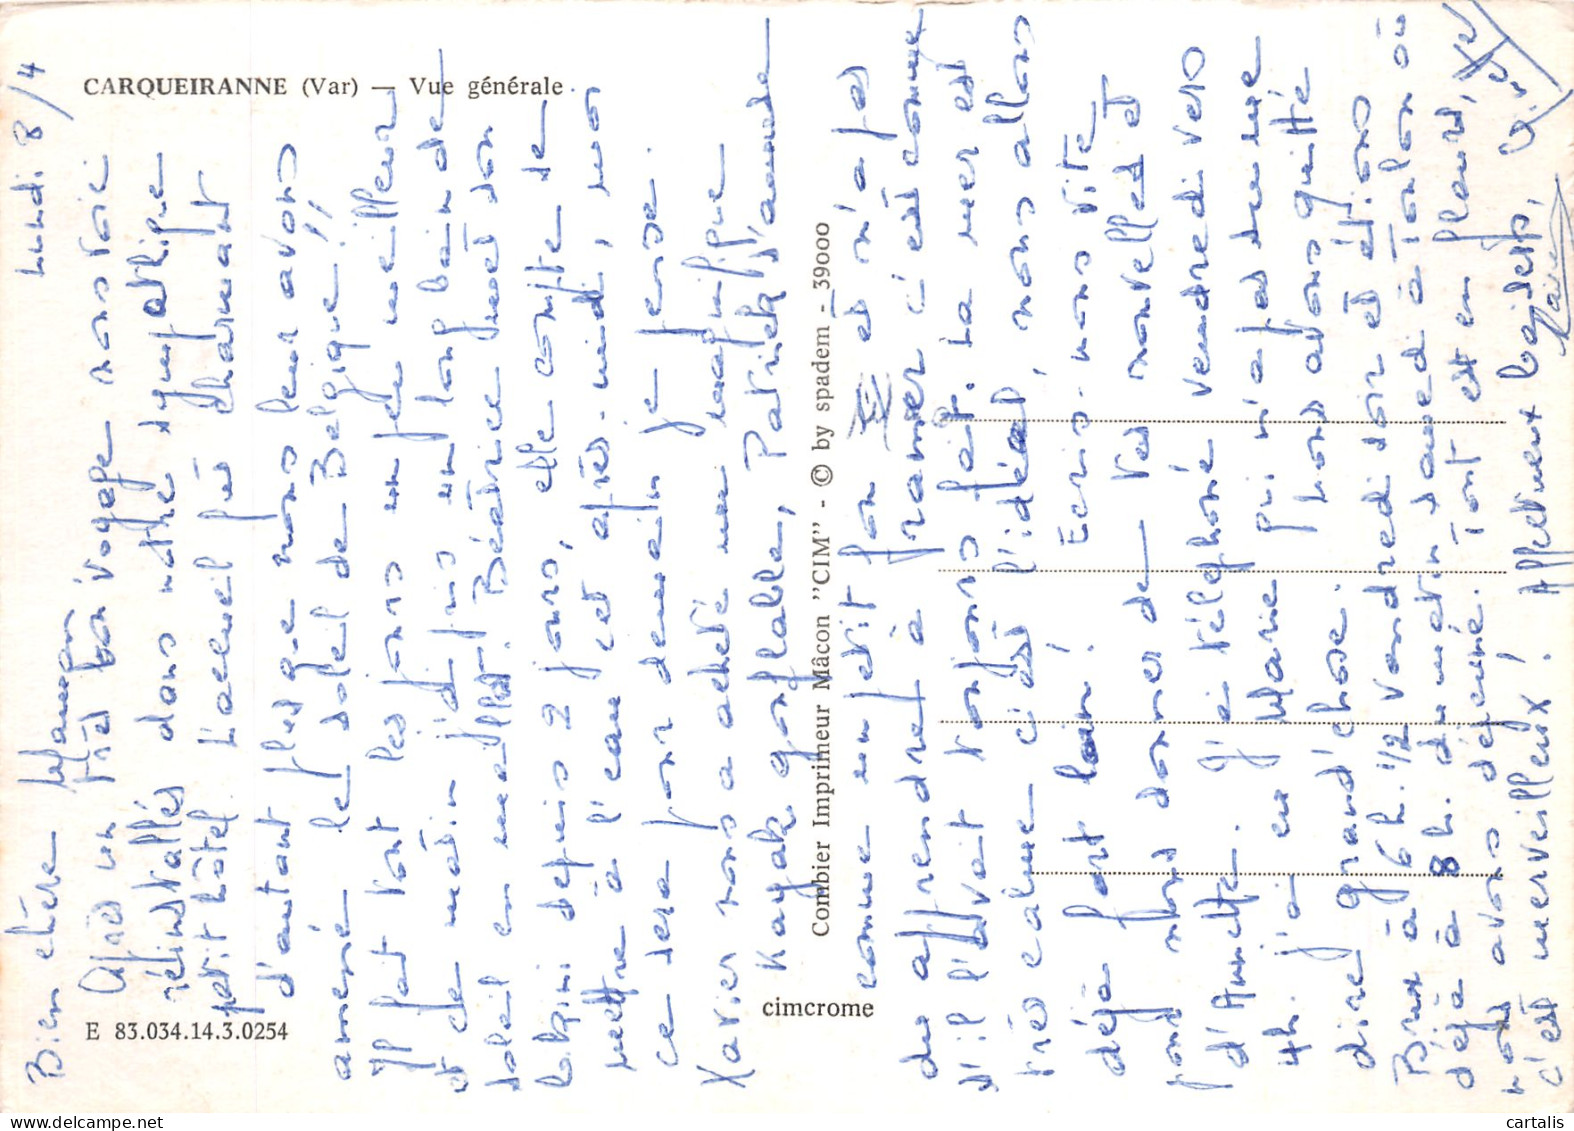 CARQUEIRANNE (Var) — Vue générale
E 83.034.14.3.0254
cimcrome
Combier Imprimeur Mâcon "CIM" - © by spadem - 39000
Lundi 8/4
Bien chère Maman
Après un très bon voyage nous voici
réinstallés dans notre sympathique
petit hôtel. L'accueil fut charmant
d'autant plus que nous leur avons
amené le soleil de Belgique !!
Il fait tout les jours un peu meilleur
et ce matin j'ai pris un long bain de
soleil en maillot. Béatrice met son
bikini depuis 2 jours, elle compte se
mettre à l'eau cet après-midi, moi
ce sera pour demain je pense.
Xavier nous a acheté un magnifique
kayak gonflable, Patrick s'amuse
comme un petit fou et n'a pas
du apprendre à ramer c'est comme
s'il l'avait toujours fait. La mer est
très calme c'est l'idéal, nous allons
déjà fort loin! Ecris-nous vite
pour nous donner de tes nouvelles et
d'Annette. J'ai téléphoné vendredi vers
4h. j'ai eu Marie qui n'a pas su me
dire grand'chose. Nous avons quitté
Brux à 6h. 1/2 vendredi soir et étions
déjà à 8h. du matin samedi à Toulon où
nous avons déjeuné. Tout est en fleurs,
c'est merveilleux! Affectueux baisers,